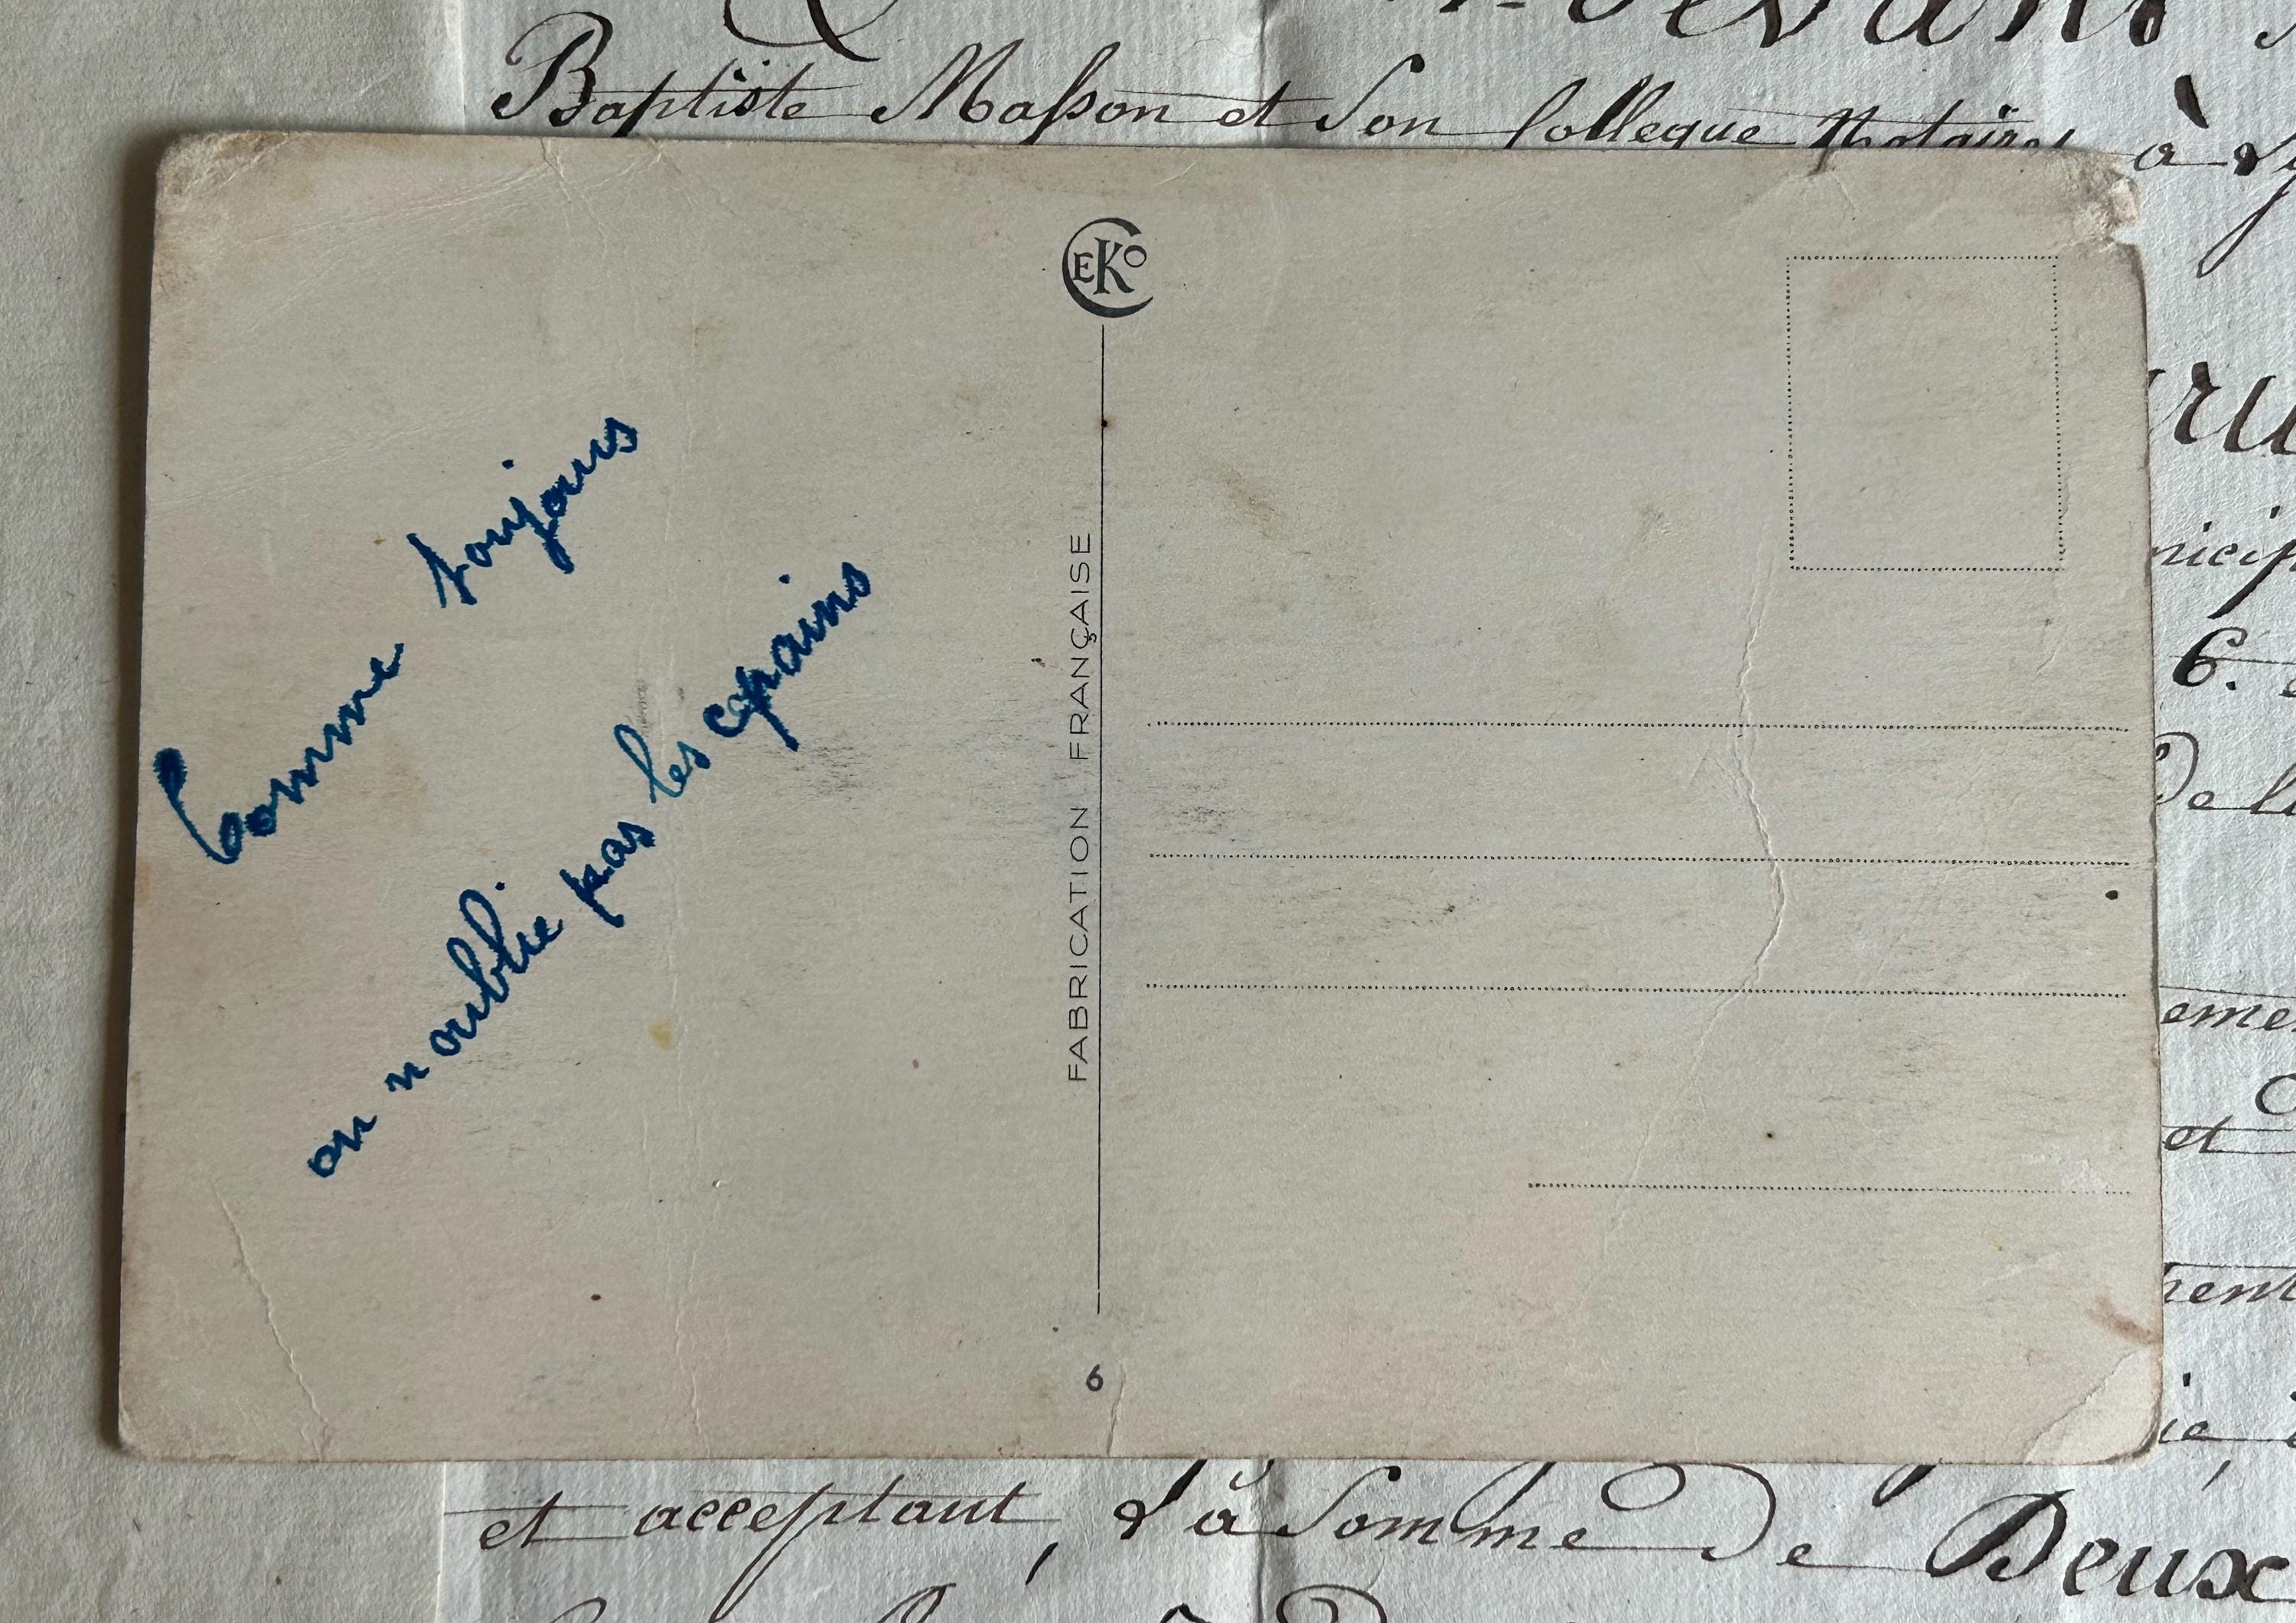 Devant
Baptiste Masson et son Collegue Notaires à
EKO
Comme toujours
on n oublie pas les copains
FABRICATION FRANÇAISE
6
6.
et
et acceptant, la somme de Deux